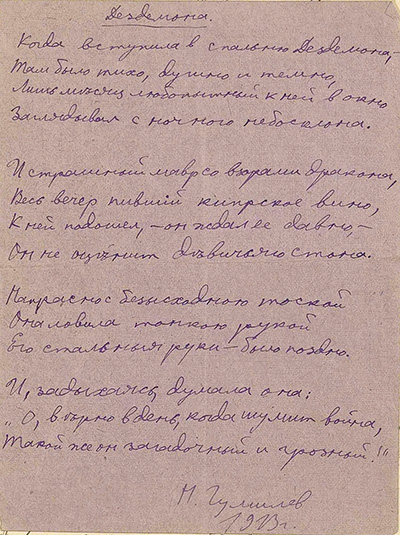 Дездемона.
Когда вступила в спальню Дездемона, –
Там было тихо, душно и темно,
Лишь мѣсяц любопытный к ней в окно
Заглядывал с ночного небосклона.
И страшный мавр со взорами дракона,
Весь вечер пившій кипрское вино,
К ней подошел, – он ждал ее давно, –
Он не оцѣнит дѣвичьяго стона.
Напрасно с безысходною тоской
Она ловила тонкою рукой
Его стальныя руки – было поздно.
И, задыхаясь, думала она:
„О, вѣрно в день, когда шумит война,
Такой же он загадочный и грозный!"
Н. Гумилёв
1913 г.